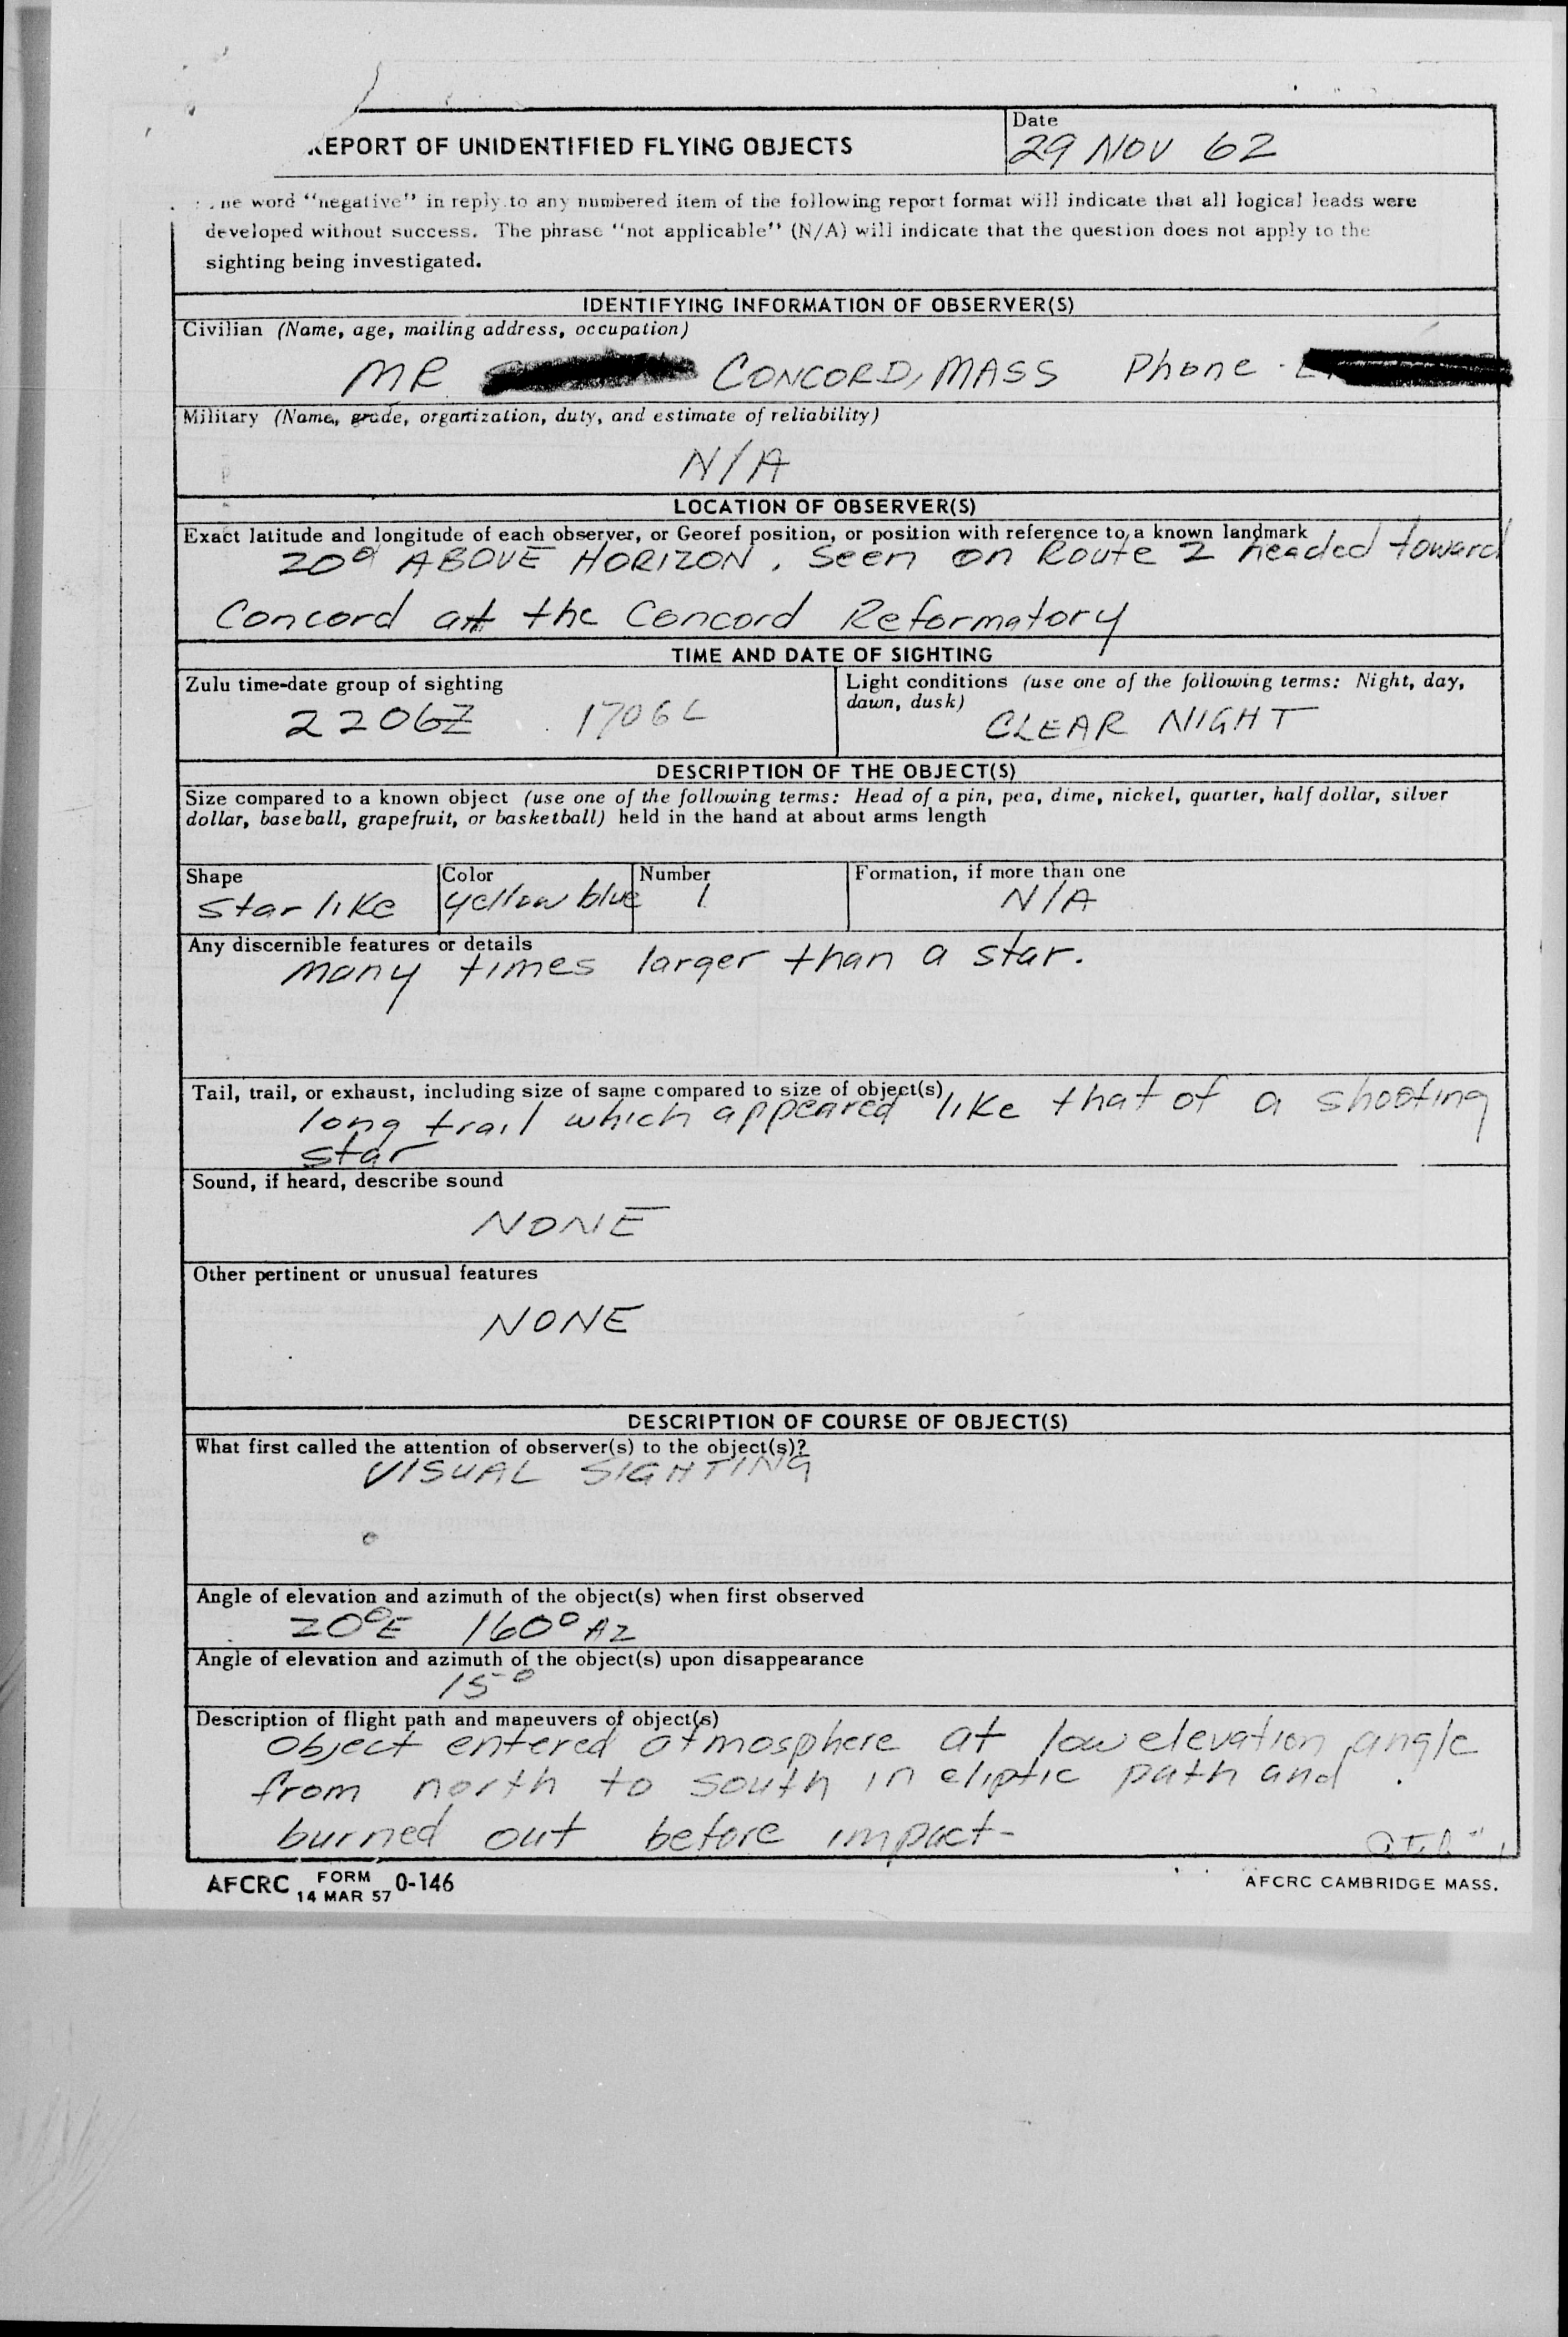 REPORT OF UNIDENTIFIED FLYING OBJECTS
Date
29 NOV 62
word "negative" in reply to any numbered item of the following report format will indicate that all logical leads were
developed without success. The phrase "not applicable" (N/A) will indicate that the question does not apply to the
sighting being investigated.
IDENTIFYING INFORMATION OF OBSERVER(S)
Civilian (Name, age, mailing address, occupation)
MR CONCORD, MASS Phone
Military (Name, grade, organization, duty, and estimate of reliability)
N/A
LOCATION OF OBSERVER(S)
Exact latitude and longitude of each observer, or Georef position, or position with reference to a known landmark
20° ABOVE HORIZON. Seen on Route 2 headed toward
Concord at the Concord Reformatory
TIME AND DATE OF SIGHTING
Zulu time-date group of sighting
2206Z 1706L
Light conditions (use one of the following terms: Night, day,
dawn, dusk)
CLEAR NIGHT
DESCRIPTION OF THE OBJECT(S)
Size compared to a known object (use one of the following terms: Head of a pin, pea, dime, nickel, quarter, half dollar, silver
dollar, baseball, grapefruit, or basketball) held in the hand at about arms length
Shape
star like
Color
yellow blue
Number
1
Formation, if more than one
N/A
Any discernible features or details
many times larger than a star.
Tail, trail, or exhaust, including size of same compared to size of object(s)
long trail which appeared like that of a shooting
star
Sound, if heard, describe sound
NONE
Other pertinent or unusual features
NONE
DESCRIPTION OF COURSE OF OBJECT(S)
What first called the attention of observer(s) to the object(s)?
VISUAL SIGHTING
Angle of elevation and azimuth of the object(s) when first observed
20°E 160° AZ
Angle of elevation and azimuth of the object(s) upon disappearance
15°
Description of flight path and maneuvers of object(s)
object entered atmosphere at low elevation angle
from north to south in eliptic path and
burned out before impact-
AFCRC FORM 0-146
14 MAR 57
AFCRC CAMBRIDGE MASS.